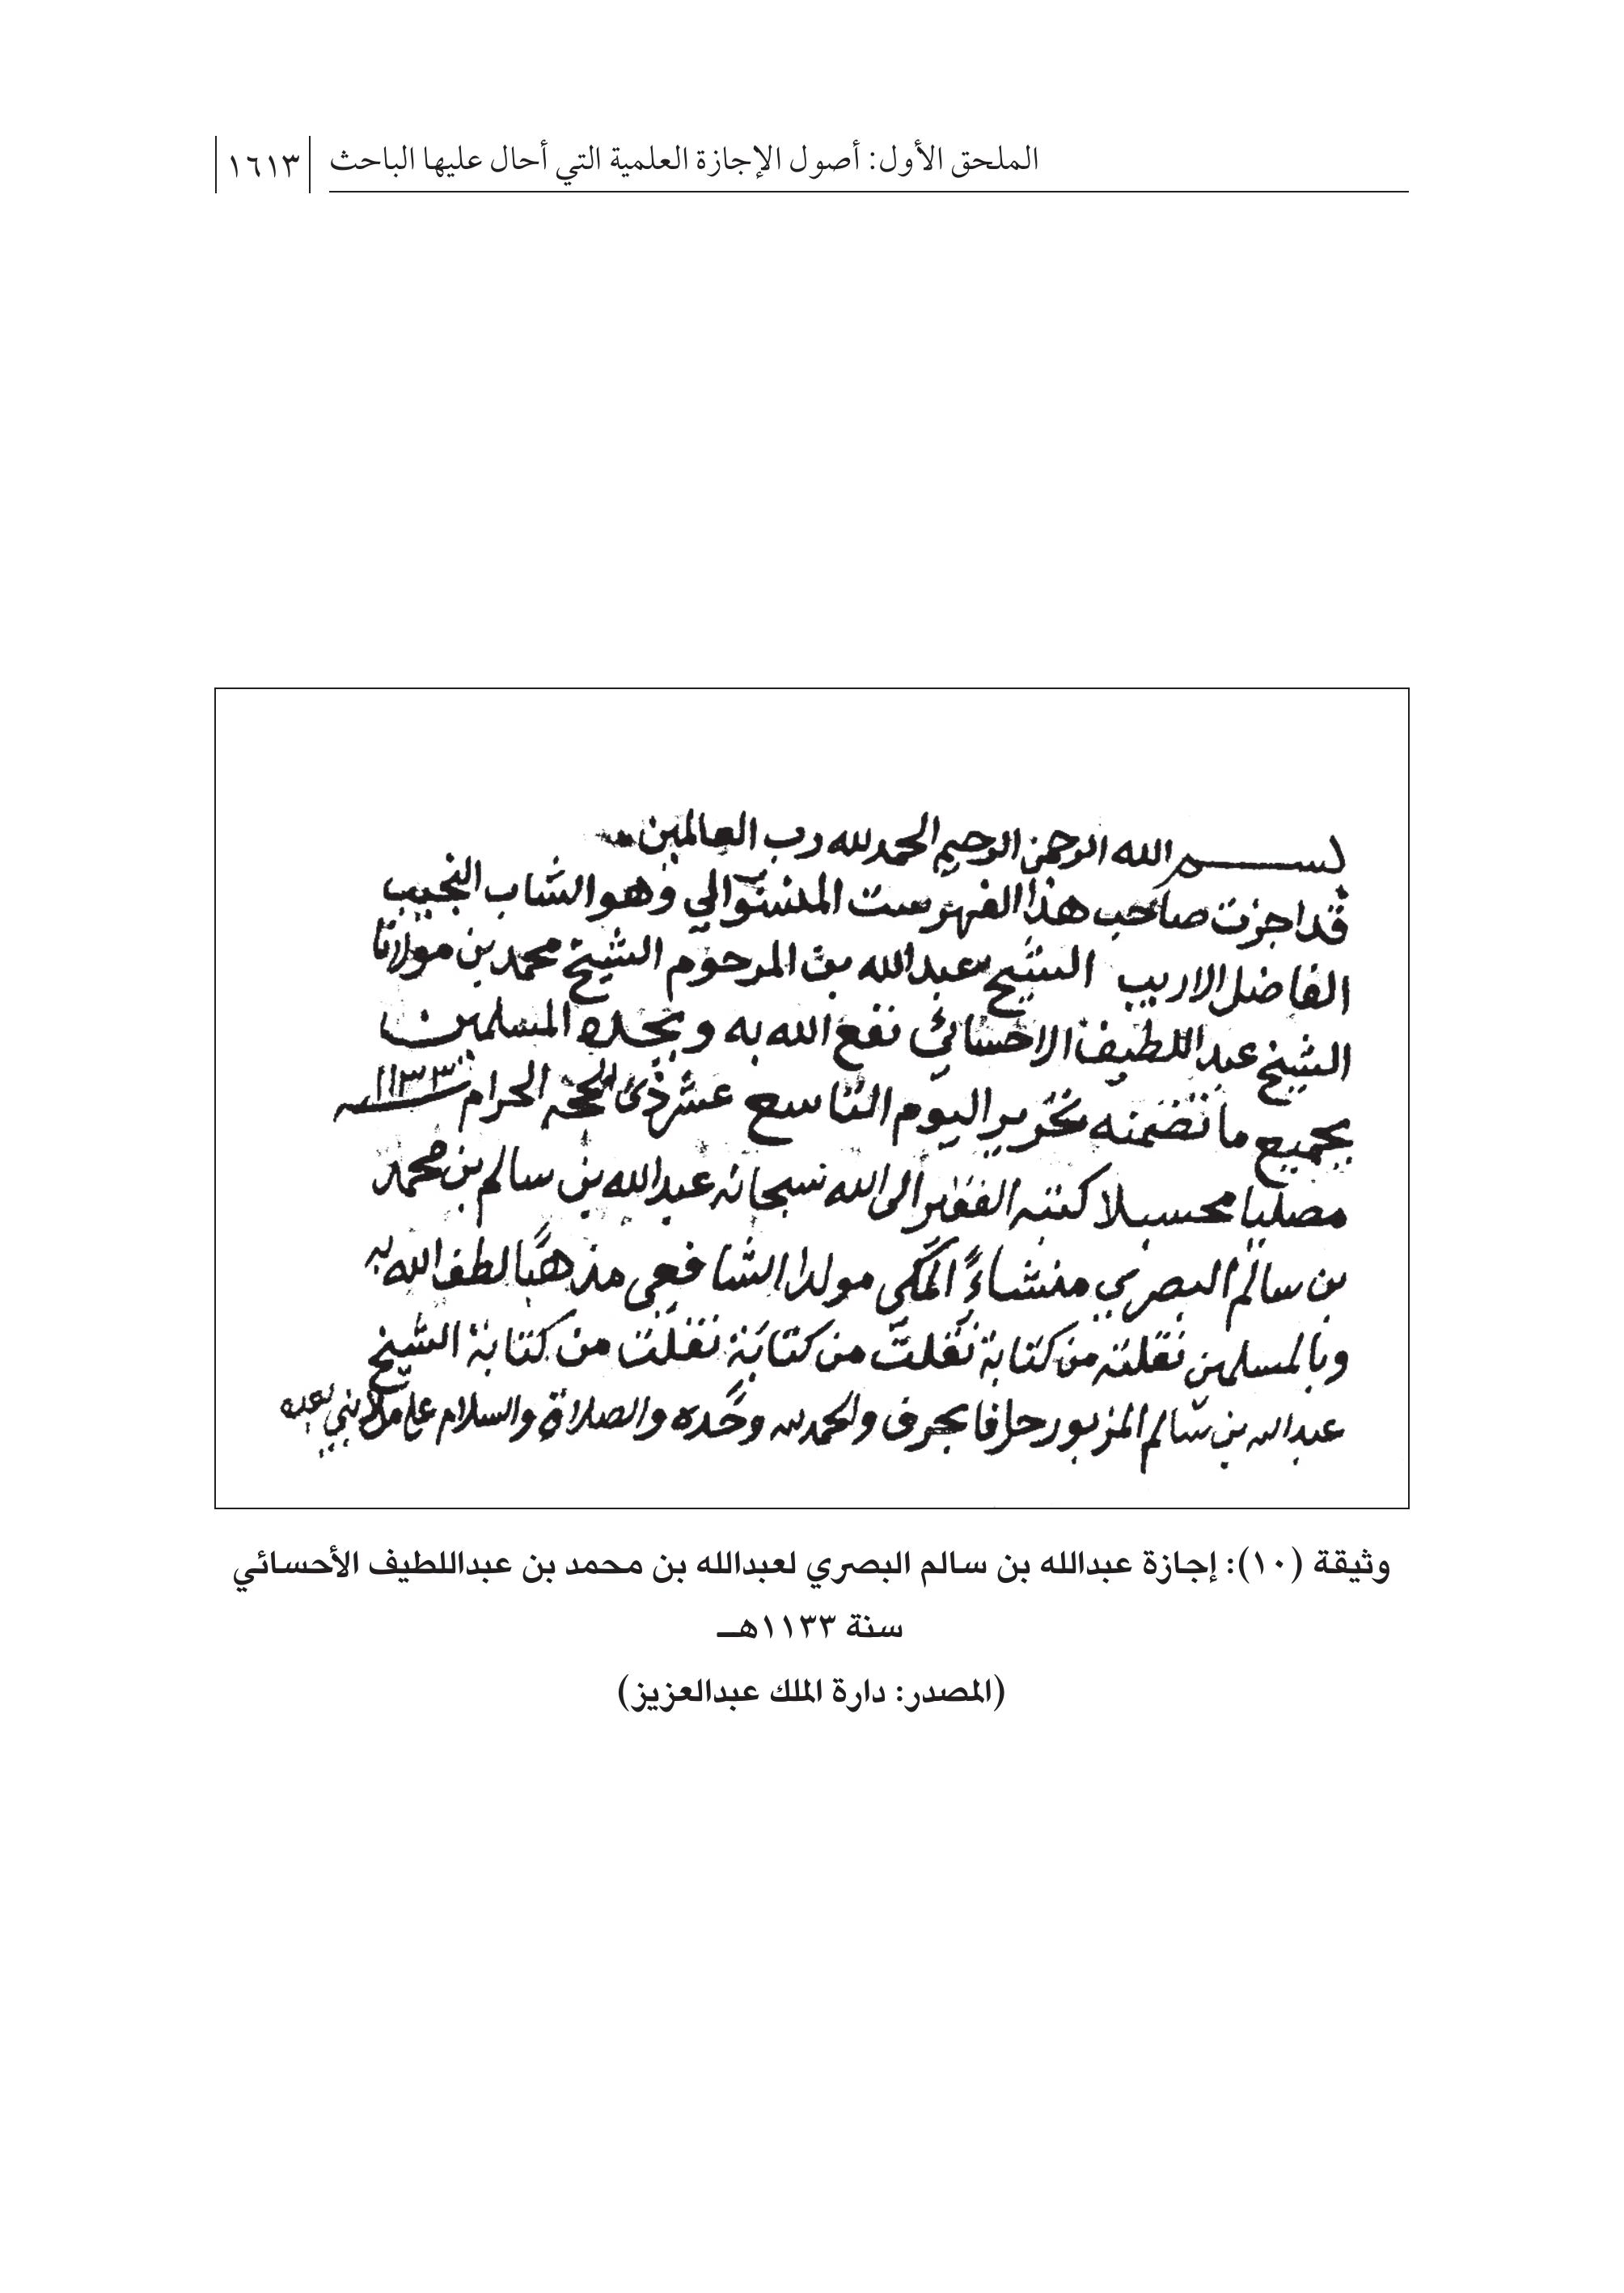 الملحق الأول: أصول الإجازة العلمية التي أحال عليها الباحث
١٦١٣
بسم الله الرحمن الرحيم الحمد لله رب العالمين
قد اجزت صاحب هذا الفهرست المنسوب الي وهو الشاب النجيب
الفاضل الاريب الشيخ عبدالله بن المرحوم الشيخ محمد بن مولانا
الشيخ عبد اللطيف الاحسائي نفع الله به وبجده المسلمين
بجميع ما تضمنه تحرير اليوم التاسع عشر ذي الحجه الحرام سنه ١١٣٣
مصليا محسبلا كتبه الفقير الى الله سبحانه عبدالله بن سالم بن محمد
بن سالم البصري منشاءً المكي مولدا الشافعي مذهبًا لطف الله به
وبالمسلمين نقلته من كتابة نقلت من كتابة نقلت من كتابة الشيخ
عبدالله بن سالم المزبور حرفا بحرف والحمد لله وحده والصلاة والسلام على من لا نبي بعده
وثيقة (١٠): إجازة عبدالله بن سالم البصري لعبدالله بن محمد بن عبداللطيف الأحسائي
سنة ١١٣٣هـ
(المصدر: دارة الملك عبدالعزيز)